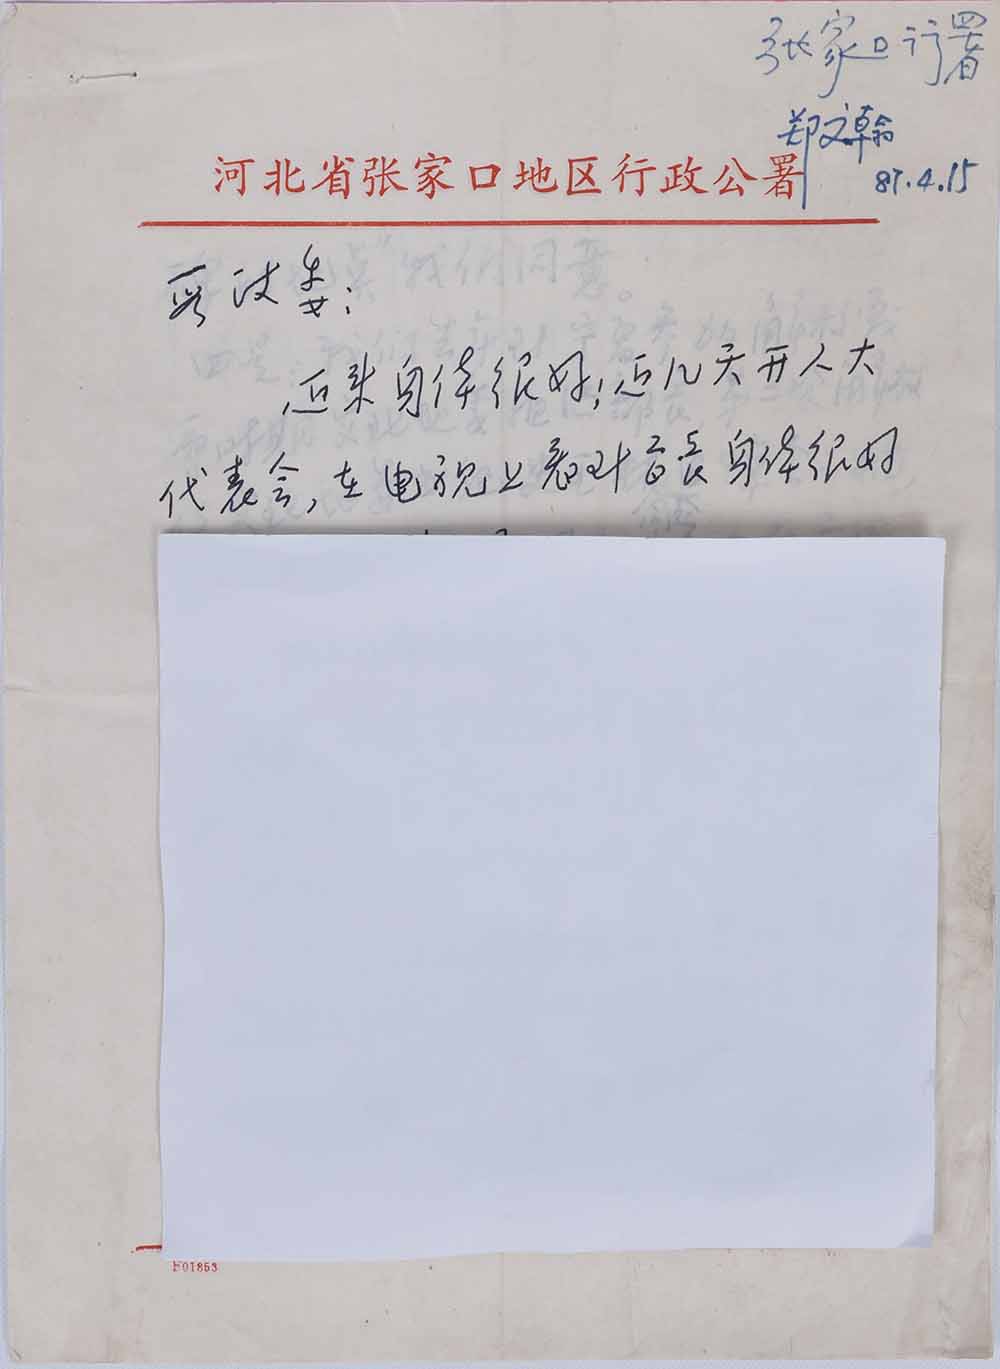 张家口行署
郑文翰
87.4.15
河北省张家口地区行政公署
政委：
近来身体很好；近几天开人大
代表会，在电视上看到首长身体很好
F01853